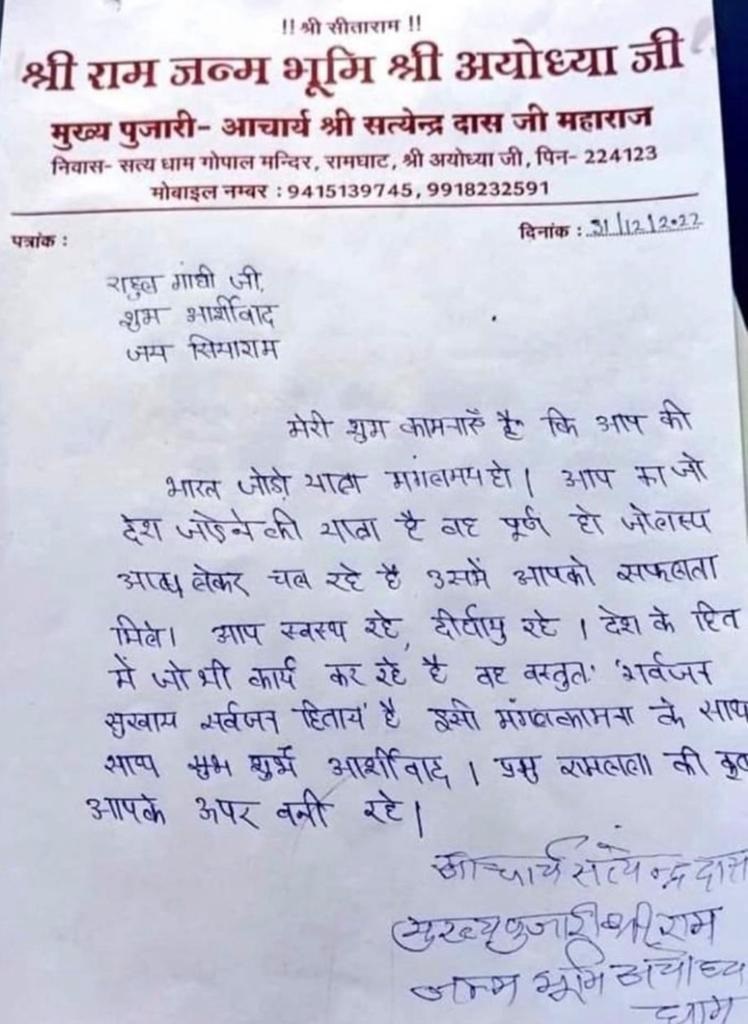 !! श्री सीताराम !!
श्री राम जन्म भूमि श्री अयोध्या जी
मुख्य पुजारी- आचार्य श्री सत्येन्द्र दास जी महाराज
निवास- सत्य धाम गोपाल मन्दिर, रामघाट, श्री अयोध्या जी, पिन- 224123
मोबाइल नम्बर : 9415139745, 9918232591
पत्रांक :
दिनांक : 31/12/2022
राहुल गांधी जी,
शुभ आर्शीवाद
जय सियाराम
मेरी शुभ कामनाएँ है कि आप की
भारत जोड़ो यात्रा मंगलमय हो। आप का जो
देश जोड़ने की यात्रा है वह पूर्ण हो जो लक्ष्य
लेकर चल रहे है उसमें आपको सफलता
मिले। आप स्वस्थ रहे, दीर्घायु रहे। देश के हित
में जो भी कार्य कर रहे है वह वस्तुतः 'सर्वजन
सुखाय सर्वजन हिताय' है इसी मंगलकामना के साथ
साथ शुभ आर्शीवाद। प्रभु रामलला की
आपके ऊपर बनी रहे।
आचार्य सत्येन्द्र दास
मुख्य पुजारी श्री राम
जन्म भूमि अयोध्या
धाम